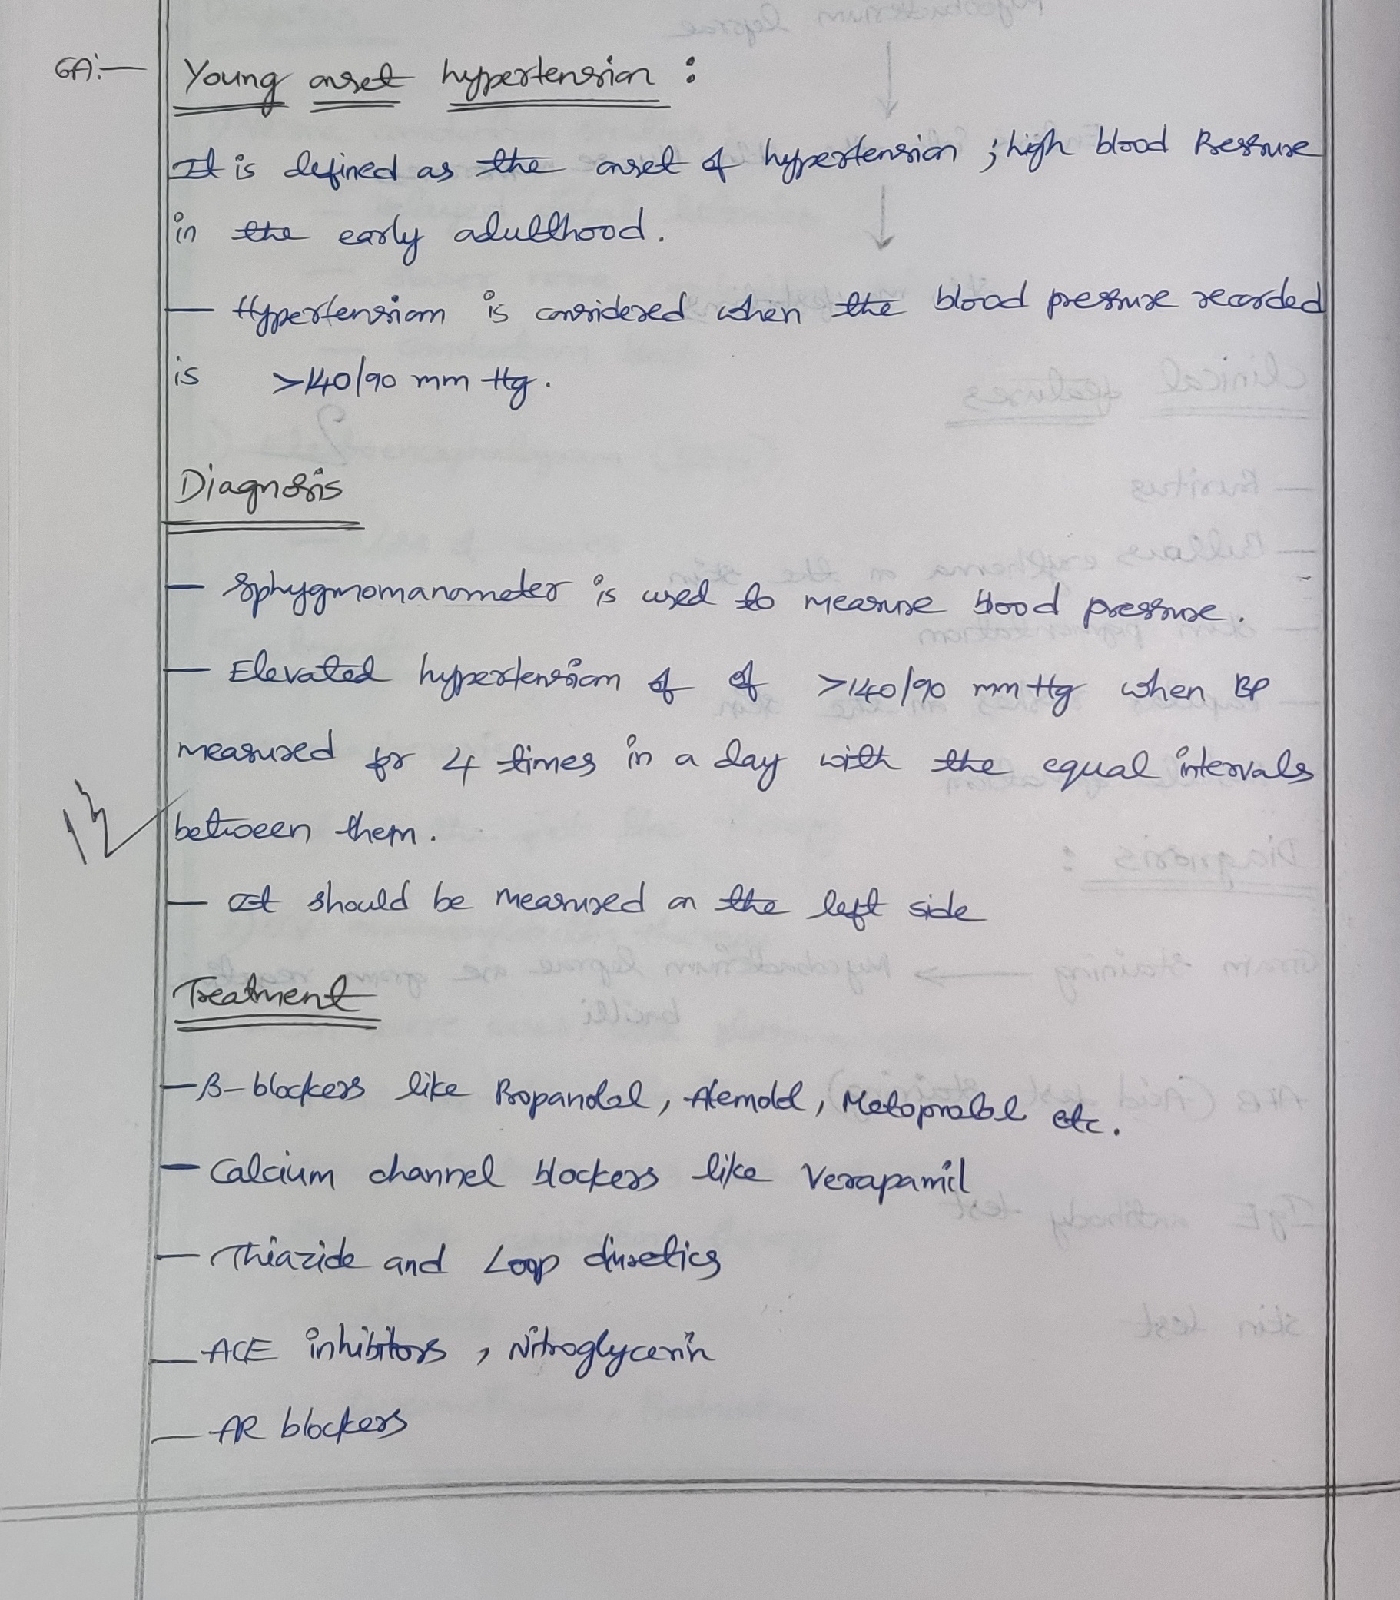 6A:-
Young onset hypertension :
It is defined as the onset of hypertension ; high blood Pressure
in the early adulthood.
— Hypertension is considered when the blood pressure recorded
is >140/90 mm Hg.
Diagnosis
— Sphygmomanometer is used to measure blood pressure.
— Elevated hypertension of of >140/90 mm Hg when BP
measured for 4 times in a day with the equal intervals
between them.
— It should be measured on the left side
Treatment
— β-blockers like Propanolol, Atenolol, Metoprolol etc.
— Calcium channel blockers like Verapamil
— Thiazide and Loop diuretics
— ACE inhibitors , Nitroglycerin
— AR blockers